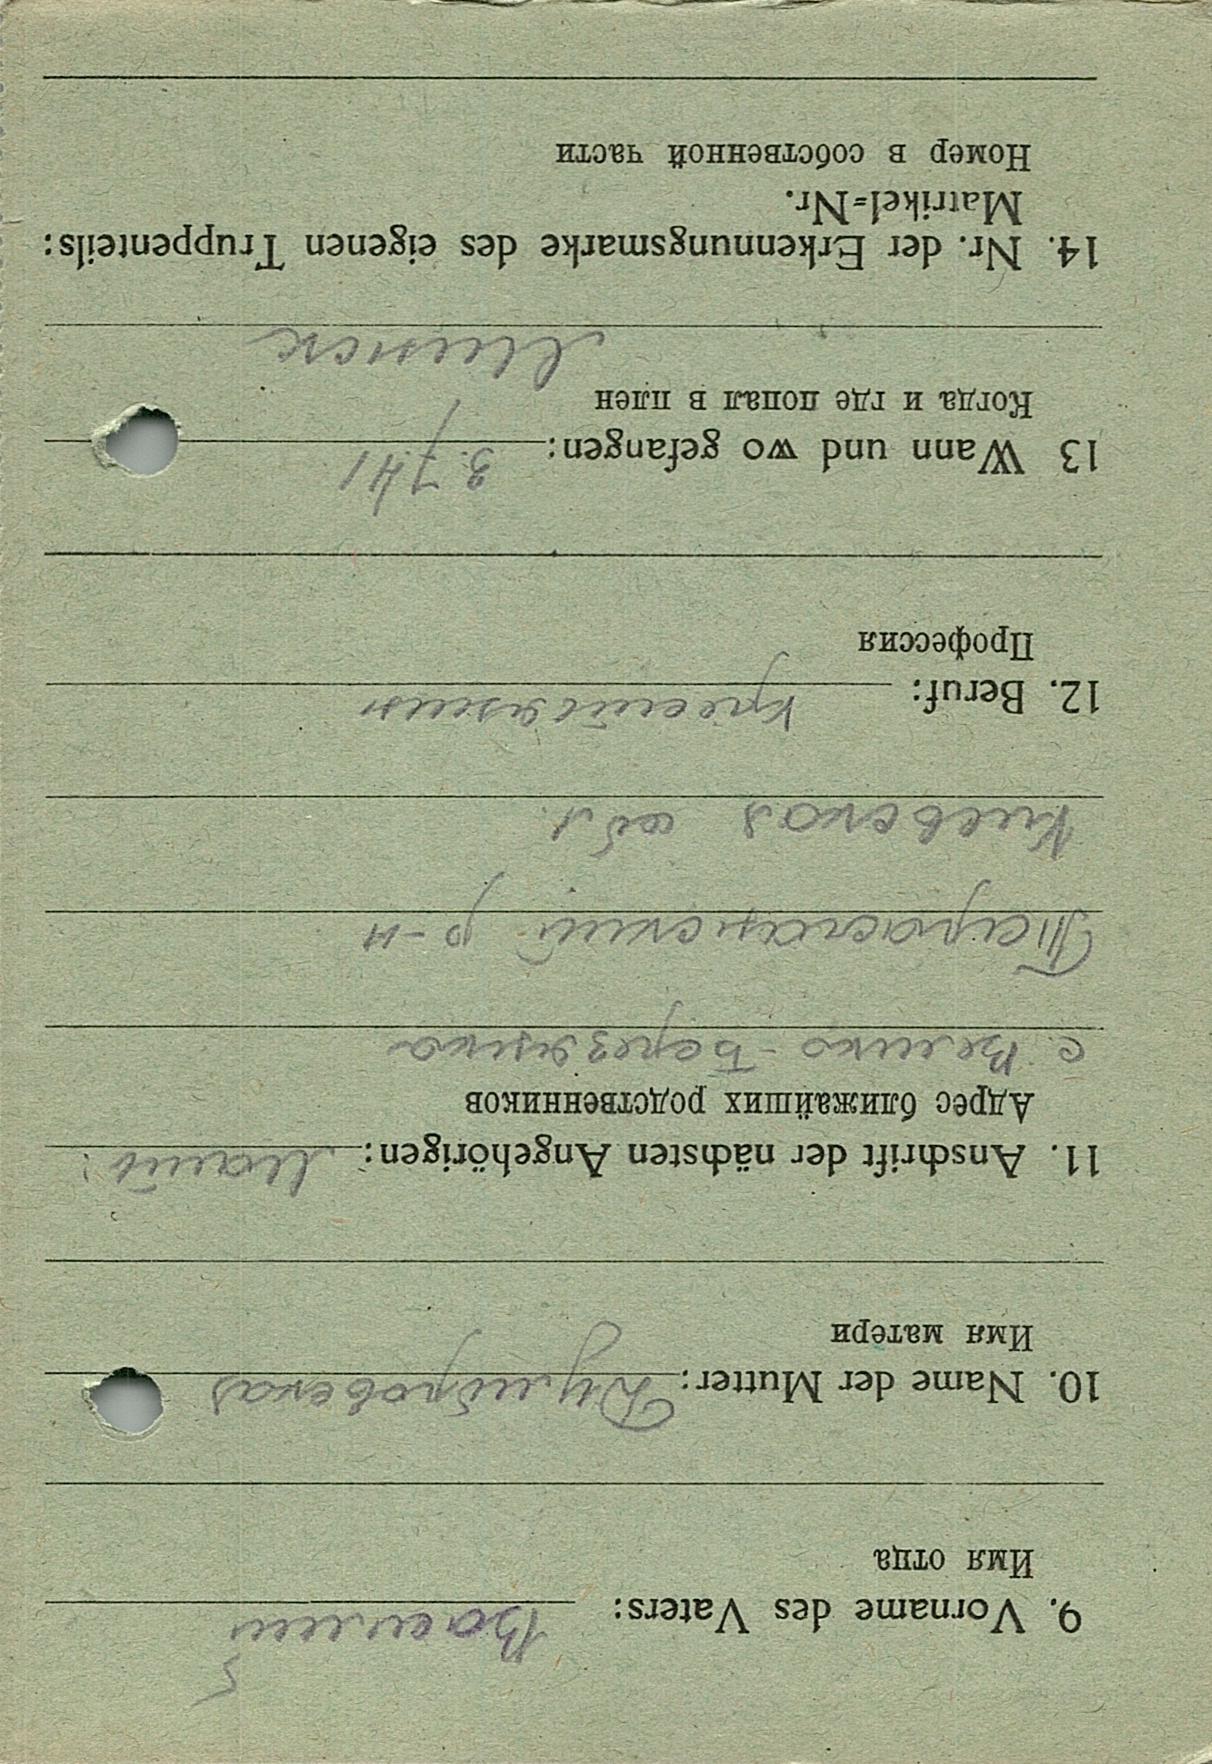 9. Vorname des Vaters: Василий
Имя отца
10. Name der Mutter:
Имя матери
11. Anschrift der nächsten Angehörigen: Мать:
Адрес ближайших родственников
с. Велико-Березянка
Таращанский р-н
Киевская обл.
12. Beruf: крестьянин
Профессия
13 Wann und wo gefangen: 3.7.41
Когда и где попал в плен
Минск
14. Nr. der Erkennungsmarke des eigenen Truppenteils:
Matrikel=Nr.
Номер в собственной части